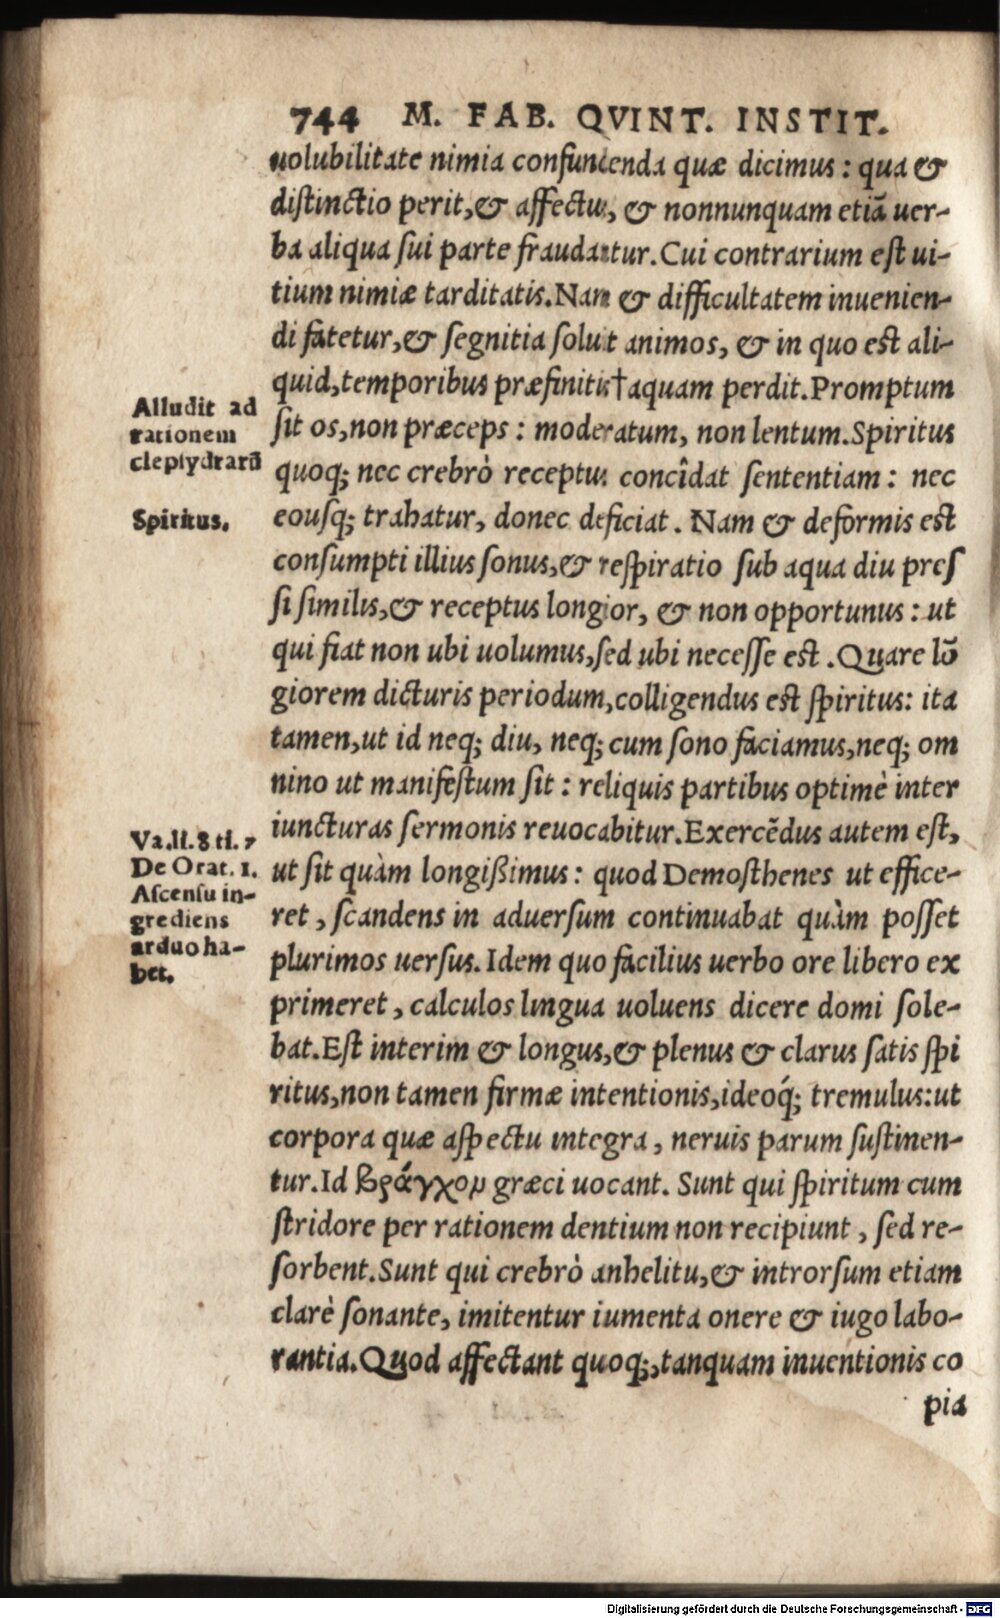 744 M. FAB. QVINT. INSTIT.
uolubilitate nimia confundenda quæ dicimus : qua &
distinctio perit,& affectus, & nonnunquam etiã uer-
ba aliqua sui parte fraudantur.Cui contrarium est ui-
tium nimiæ tarditatis.Nam & difficultatem inuenien-
di fatetur,& segnitia soluit animos, & in quo est ali-
quid,temporibus præfinitis†aquam perdit.Promptum
Alludit ad
rationem
clepsydrarũ
sit os,non præceps : moderatum, non lentum.Spiritus
quoq; nec crebrò receptus concîdat sententiam : nec
Spiritus.
eousq; trahatur, donec deficiat . Nam & deformis est
consumpti illius sonus,& respiratio sub aqua diu pres
si similis,& receptus longior, & non opportunus : ut
qui fiat non ubi uolumus,sed ubi necesse est .Quare lõ
giorem dicturis periodum,colligendus est spiritus: ita
tamen,ut id neq; diu, neq; cum sono faciamus,neq; om
nino ut manifestum sit : reliquis partibus optimè inter
iuncturas sermonis reuocabitur.Exercẽdus autem est,
Va.li.8 ti.7
De Orat. 1.
Ascensu in-
grediens
arduo ha-
bet.
ut sit quàm longißimus : quod Demosthenes ut effice-
ret , scandens in aduersum continuabat quàm posset
plurimos uersus.Idem quo facilius uerbo ore libero ex
primeret , calculos lingua uoluens dicere domi sole-
bat.Est interim & longus,& plenus & clarus satis spi
ritus,non tamen firmæ intentionis,ideoq́; tremulus:ut
corpora quæ aspectu integra , neruis parum sustinen-
tur.Id βράγχομ græci uocant. Sunt qui spiritum cum
stridore per rationem dentium non recipiunt , sed re-
sorbent.Sunt qui crebrò anhelitu,& introrsum etiam
clarè sonante, imitentur iumenta onere & iugo labo-
rantia.Quod affectant quoq;,tanquam inuentionis co
pia
Digitalisierung gefördert durch die Deutsche Forschungsgemeinschaft - DFG